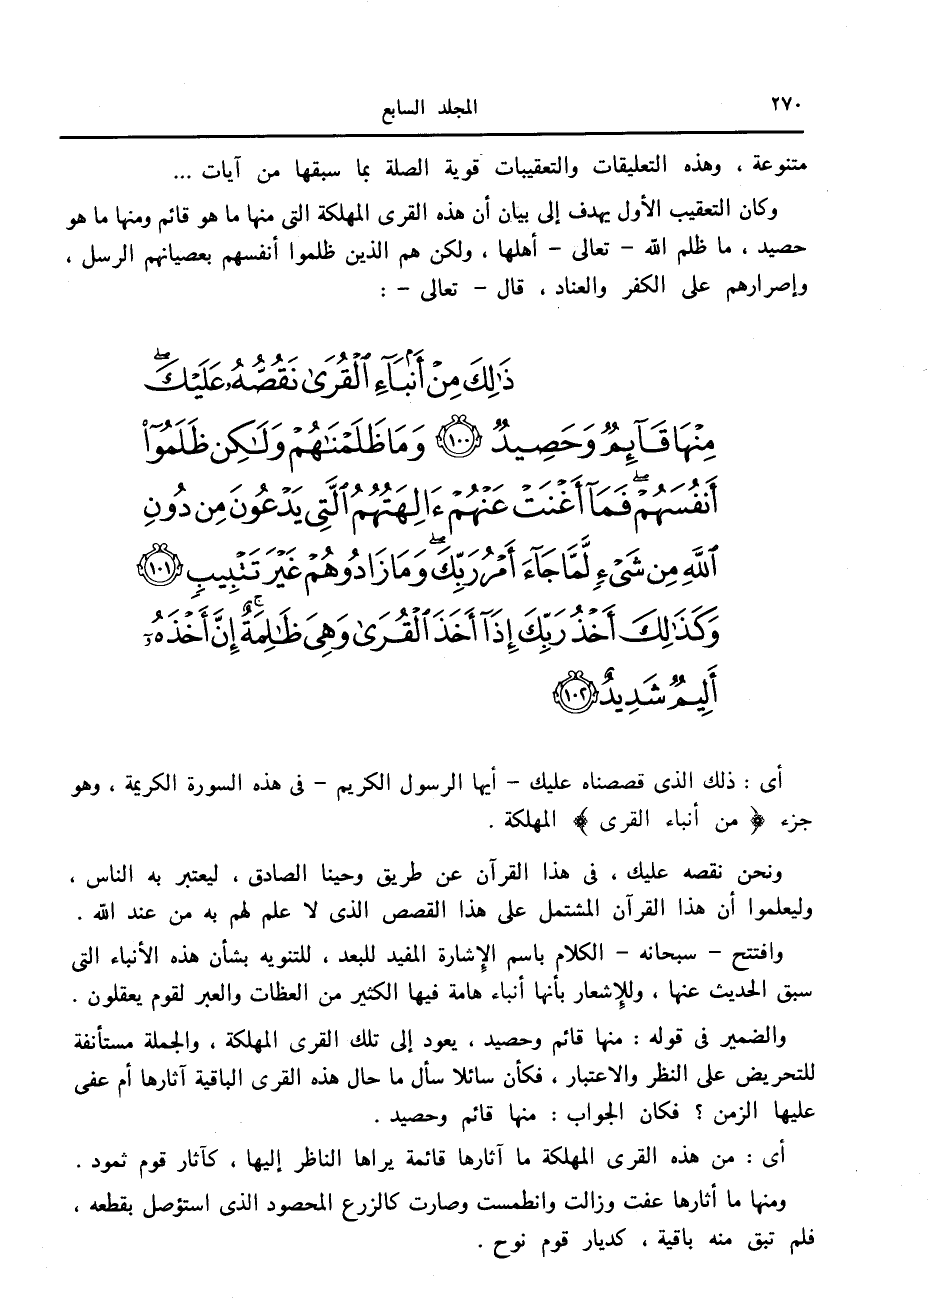 ٢٧٠
المجلد السابع
متنوعة ، وهذه التعليقات والتعقيبات قوية الصلة بما سبقها من آيات ...
وكان التعقيب الأول يهدف إلى بيان أن هذه القرى المهلكة التى منها ما هو قائم ومنها ما هو
حصيد ، ما ظلم الله – تعالى – أهلها ، ولكن هم الذين ظلموا أنفسهم بعصيانهم الرسل ،
وإصرارهم على الكفر والعناد ، قال – تعالى – :
ذَٰلِكَ مِنْ أَنۢبَآءِ ٱلْقُرَىٰ نَقُصُّهُۥ عَلَيْكَ ۖ
مِنْهَا قَآئِمٌ وَحَصِيدٌ ١٠٠ وَمَا ظَلَمْنَٰهُمْ وَلَٰكِن ظَلَمُوٓا۟
أَنفُسَهُمْ ۖ فَمَآ أَغْنَتْ عَنْهُمْ ءَالِهَتُهُمُ ٱلَّتِى يَدْعُونَ مِن دُونِ
ٱللَّهِ مِن شَىْءٍ لَّمَّا جَآءَ أَمْرُ رَبِّكَ ۖ وَمَا زَادُوهُمْ غَيْرَ تَتْبِيبٍ ١٠١
وَكَذَٰلِكَ أَخْذُ رَبِّكَ إِذَآ أَخَذَ ٱلْقُرَىٰ وَهِىَ ظَٰلِمَةٌ ۚ إِنَّ أَخْذَهُۥٓ
أَلِيمٌ شَدِيدٌ ١٠٢
أى : ذلك الذى قصصناه عليك – أيها الرسول الكريم – فى هذه السورة الكريمة ، وهو
جزء ﴿ من أنباء القرى ﴾ المهلكة .
ونحن نقصه عليك ، فى هذا القرآن عن طريق وحينا الصادق ، ليعتبر به الناس ،
وليعلموا أن هذا القرآن المشتمل على هذا القصص الذى لا علم لهم به من عند الله .
وافتتح – سبحانه – الكلام باسم الإشارة المفيد للبعد ، للتنويه بشأن هذه الأنباء التى
سبق الحديث عنها ، وللإشعار بأنها أنباء هامة فيها الكثير من العظات والعبر لقوم يعقلون .
والضمير فى قوله : منها قائم وحصيد ، يعود إلى تلك القرى المهلكة ، والجملة مستأنفة
للتحريض على النظر والاعتبار ، فكأن سائلا سأل ما حال هذه القرى الباقية آثارها أم عفى
عليها الزمن ؟ فكان الجواب : منها قائم وحصيد .
أى : من هذه القرى المهلكة ما آثارها قائمة يراها الناظر إليها ، كآثار قوم ثمود .
ومنها ما أثارها عفت وزالت وانطمست وصارت كالزرع المحصود الذى استؤصل بقطعه ،
فلم تبق منه باقية ، كديار قوم نوح .